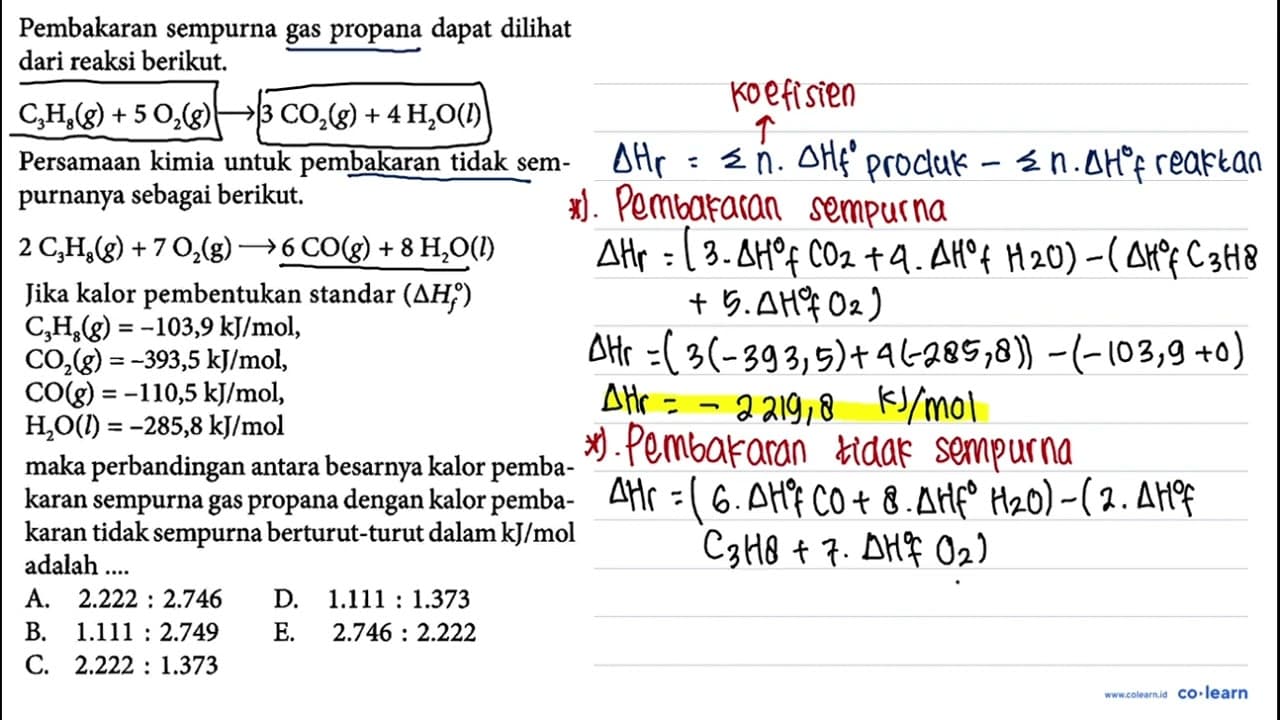 Pembakaran sempurna gas propana dapat dilihat
dari reaksi berikut.
C₃H₈(g) + 5 O₂(g) ⟶ 3 CO₂(g) + 4 H₂O(l)
Persamaan kimia untuk pembakaran tidak sem-
purnanya sebagai berikut.
2 C₃H₈(g) + 7 O₂(g) ⟶ 6 CO(g) + 8 H₂O(l)
Jika kalor pembentukan standar (ΔHf°)
C₃H₈(g) = –103,9 kJ/mol,
CO₂(g) = –393,5 kJ/mol,
CO(g) = –110,5 kJ/mol,
H₂O(l) = –285,8 kJ/mol
maka perbandingan antara besarnya kalor pemba-
karan sempurna gas propana dengan kalor pemba-
karan tidak sempurna berturut-turut dalam kJ/mol
adalah ....
A. 2.222 : 2.746
B. 1.111 : 2.749
C. 2.222 : 1.373
D. 1.111 : 1.373
E. 2.746 : 2.222
Koefisien
↑
ΔHr = Σ n. ΔHf° produk – Σ n. ΔH°f reaktan
*). Pembakaran sempurna
ΔHr = (3. ΔH°f CO2 + 4. ΔH°f H2O) – (ΔH°f C3H8
+ 5. ΔH°f O2)
ΔHr = (3(-393,5) + 4(-285,8)) – (-103,9 + 0)
ΔHr = – 2219,8 kJ/mol
*). Pembakaran tidak sempurna
ΔHr = (6. ΔH°f CO + 8. ΔHf° H2O) – (2. ΔH°f
C3H8 + 7. ΔH°f O2)
www.colearn.id co·learn